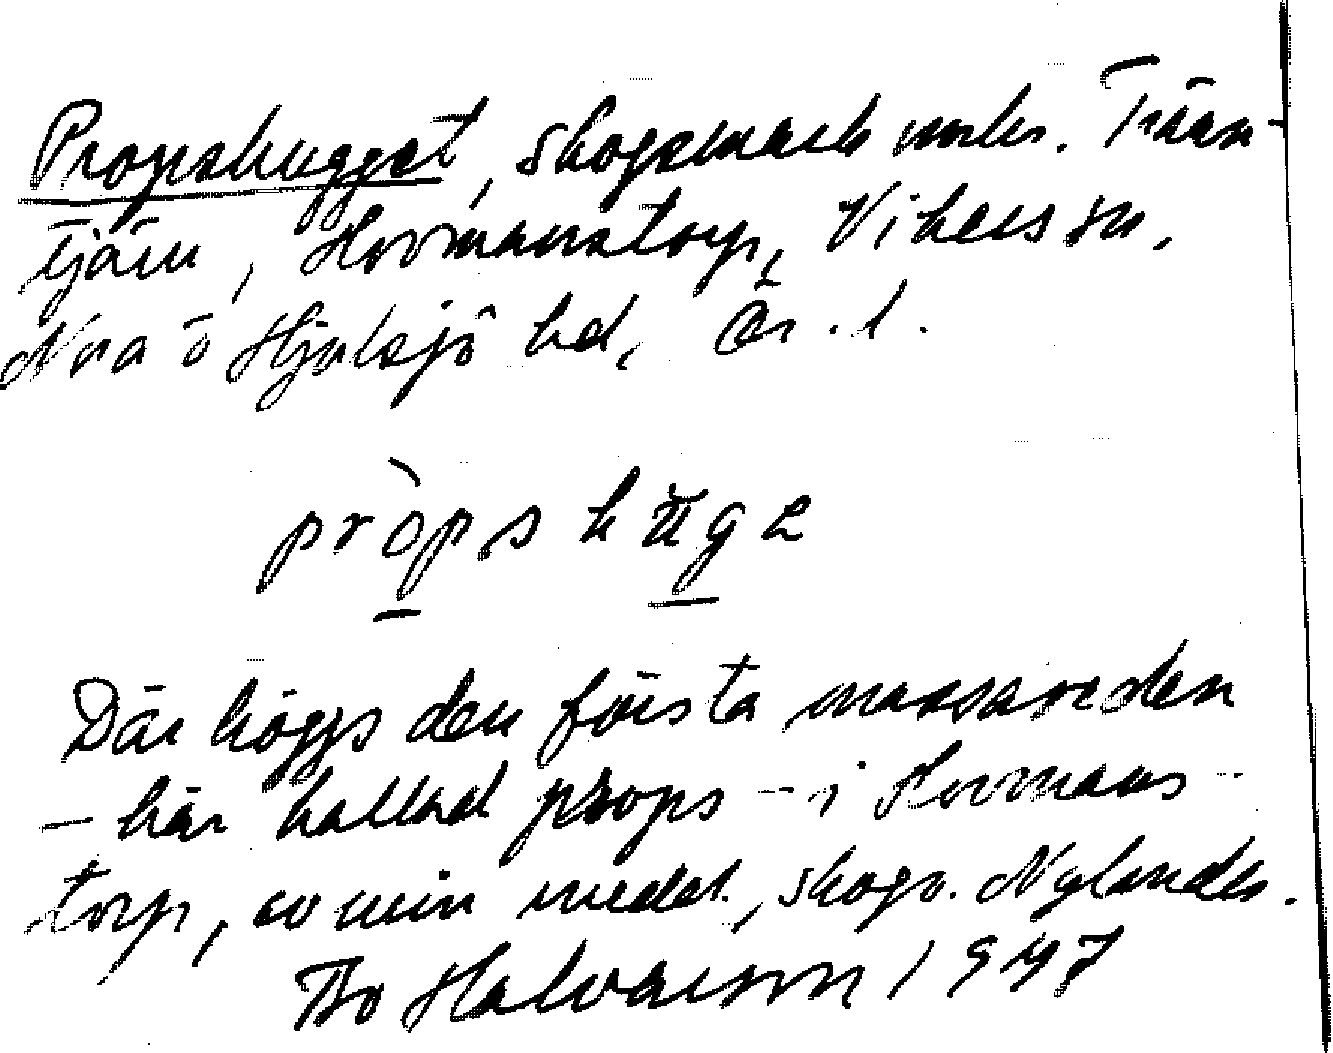 Propshugget, skogsmark under. Trän-
tjärn, Hovmanstorp, Vikers sn,
Nora o Hjulsjö hd, Ör. l.
pròpshüge
Där höggs den första massaveden
– här kallad props – i Hovmans-
torp, av min meddel., skogv. Nylander.
Bo Halvarson 1947